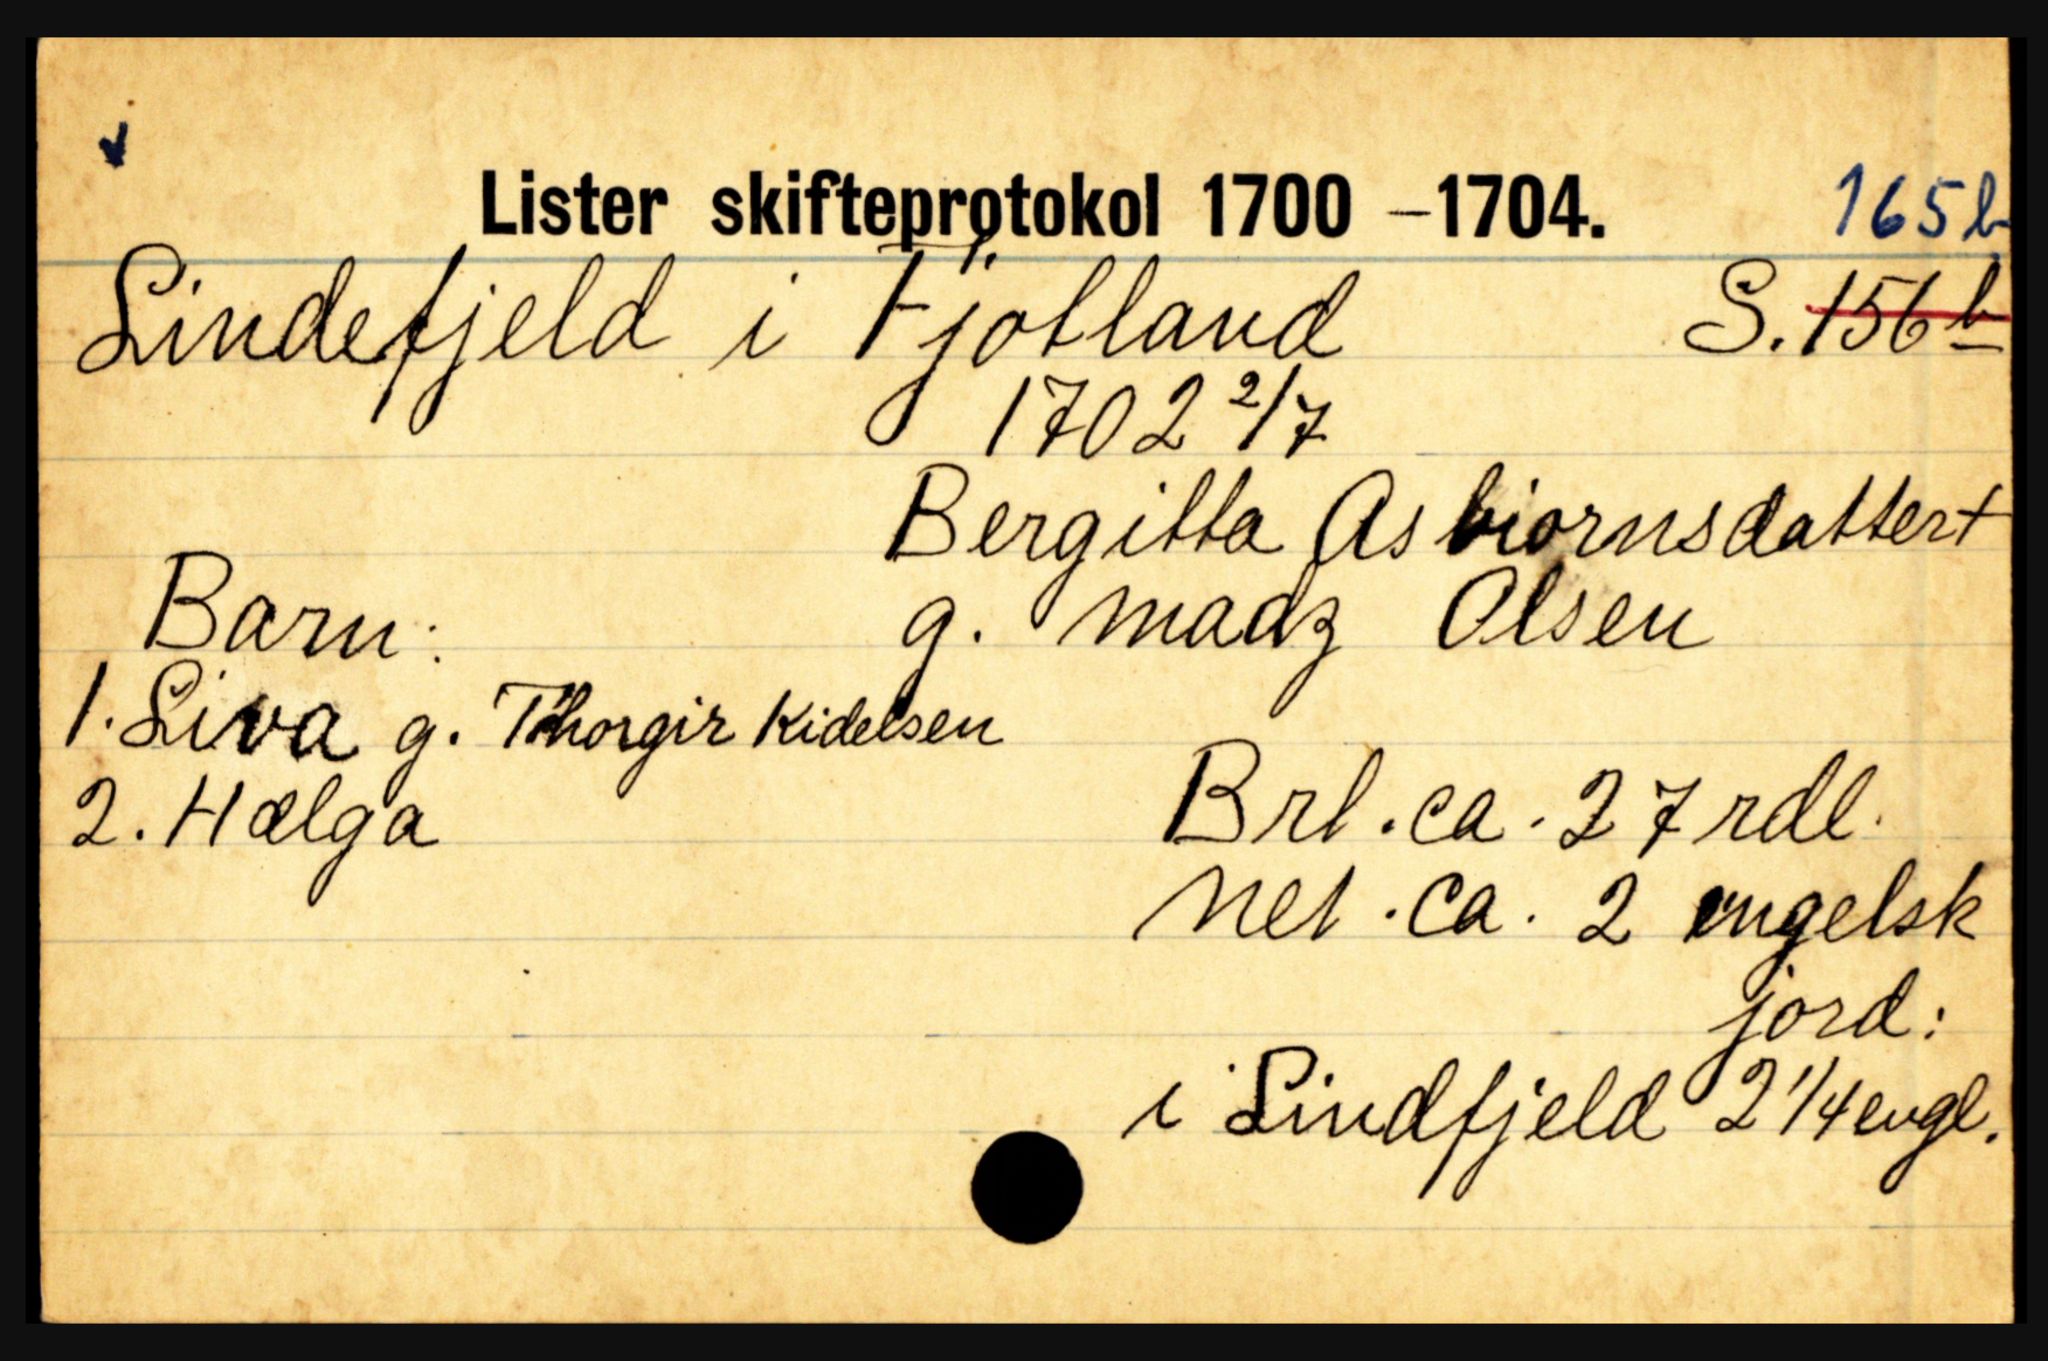 Lister skifteprotokol 1700 – 1704.
165 b
Lindefjeld i Fjotland S. 156 b
1702 2/7
Bergitta Asbiornsdatter†
Barn: g. Madz Olsen
1. Siva g. Thorgir Kidelsen
2. Hælga
Brt. ca. 27 rdl.
Net. ca. 2 engelsk
jord:
i Lindfjeld 2 1/4 engl.